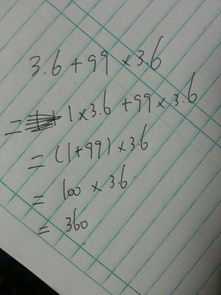 3.6+99×3.6
=1×3.6+99×3.6
=(1+99)×3.6
=100×3.6
=360